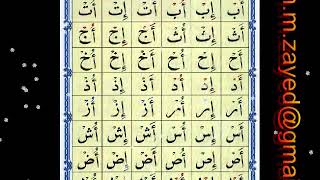 أَبْ إِبْ أُبْ أَتْ إِتْ أُتْ
أَثْ إِثْ أُثْ أَجْ إِجْ أُجْ
أَحْ إِحْ أُحْ أَخْ إِخْ أُخْ
أَدْ إِدْ أُدْ أَذْ إِذْ أُذْ
أَرْ إِرْ أُرْ أَزْ إِزْ أُزْ
أَسْ إِسْ أُسْ أَشْ إِشْ أُشْ
أَصْ إِصْ أُصْ أَضْ إِضْ أُضْ
.m.zayed@gma